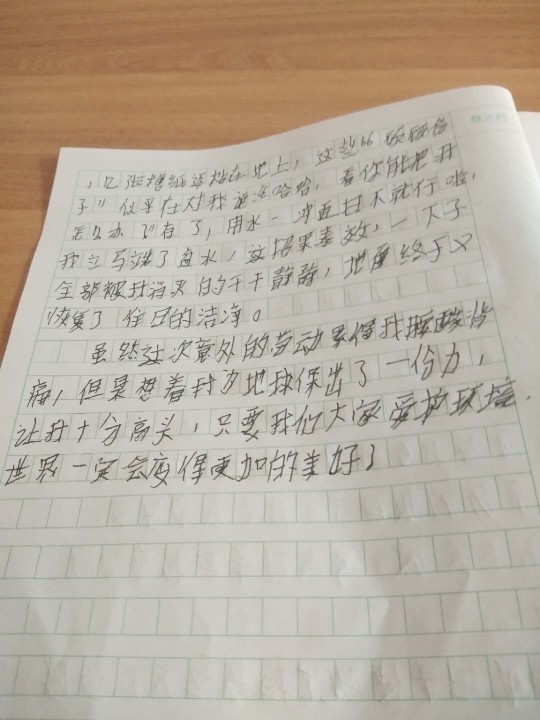 ，几张增纸还粘在地上，这些"顽固份
子"似乎在对我说："哈哈，看你能把我
怎么办"！有了，用水一冲而且不就行啦，
我立马端了盆水，这招果真效，一下子
全部被我消灭的干干静静，地面终于又
恢复了往日的洁净。
虽然这次意外的劳动累得我腰酸背
痛，但是想着我为地球保出了一份力，
让我十分高头，只要我们大家爱护环境，
世界一定会变得更加的美好！